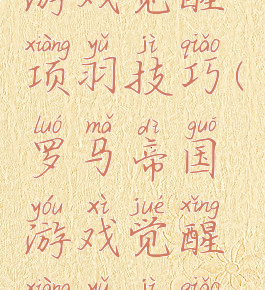 游戏觉醒
xiàng yǔ jì qiǎo
项羽技巧(
luó mǎ dì guó
罗马帝国
yóu xì jué xǐng
游戏觉醒
xiàng yǔ jì qiǎo